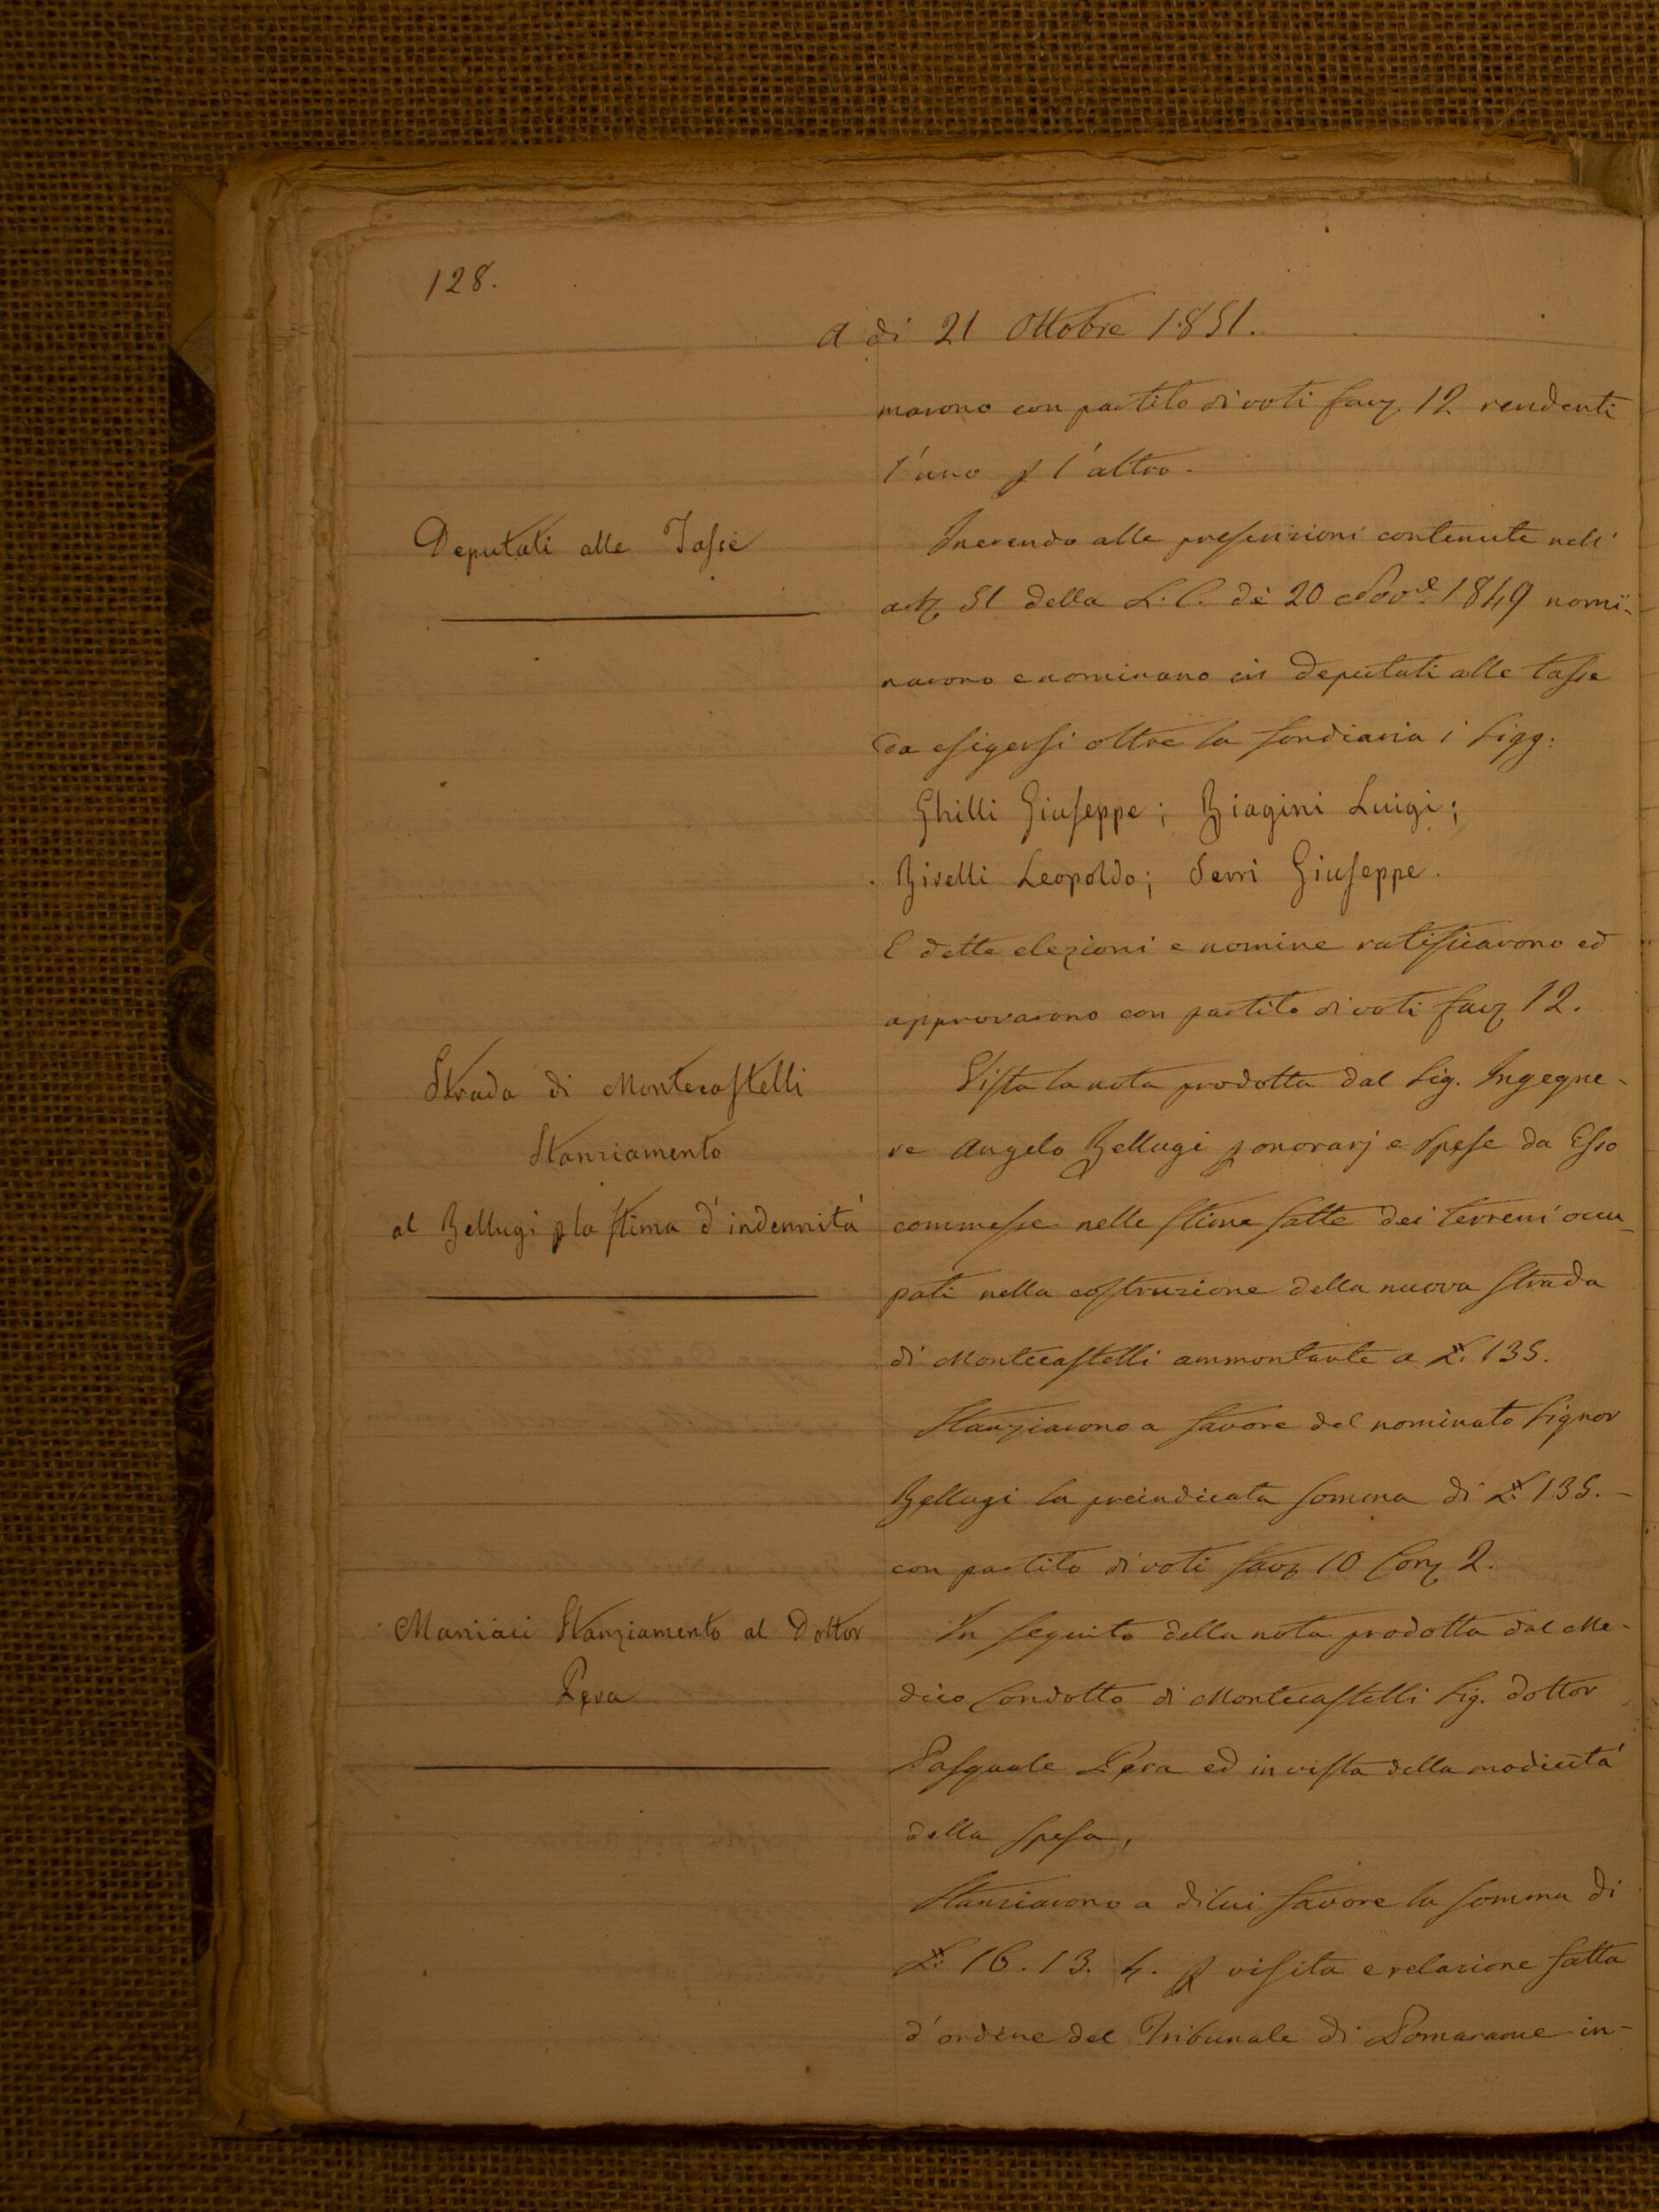 128.
A dì 21 Ottobre 1851.
marono con partito di voti favz. 12 rendenti
l'uno p l'altro.
Deputati alle Tasse
Inerendo alle prescrizioni contenute nell'
artz. 51 della L. C. de 20 Nov.e 1849 nomi-
narono e nominano in Deputati alle tasse
da esigersi oltre la fondiaria i Sigg:
Ghilli Giuseppe; Biagini Luigi;
Bivelli Leopoldo; Serri Giuseppe.
E dette elezioni e nomine ratificarono ed
approvarono con partito di voti favz 12.
Strada di Montecastelli
Stanziamento
al Bellugi p la stima d'indennità
Vista la nota prodotta dal Sig. Ingegne-
re Angelo Bellugi p onorarj e Spese da Esso
commesse nelle stime fatte dei terreni occu-
pati nella costruzione della nuova strada
di Montecastelli ammontante a L. 135.
Stanziarono a favore del nominato Signor
Bellugi la preindicata somma di L. 135.-
con partito di voti favz 10 Conz 2.
Maniaci Stanziamento al Dottor
Pera
In seguito della nota prodotta dal Me-
dico Condotto di Montecastelli Sig. Dottor
Pasquale Pera ed in vista della modicità
della spesa,
Stanziarono a di lui favore la somma di
L. 16. 13. 4. p visita e relazione fatta
d'ordine del Tribunale di Pomarance in-